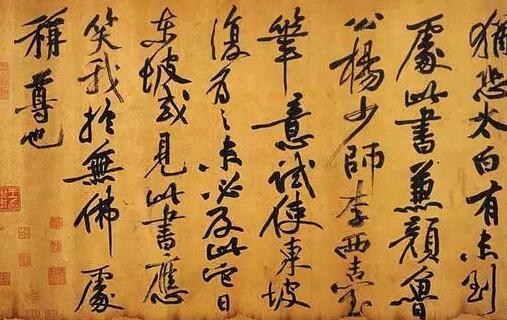 猶恐太白有未到
處此書兼顏魯
公楊少師李西臺
筆意試使東坡
復為之未必及此它日
東坡或見此書應
笑我於無佛處
稱尊也